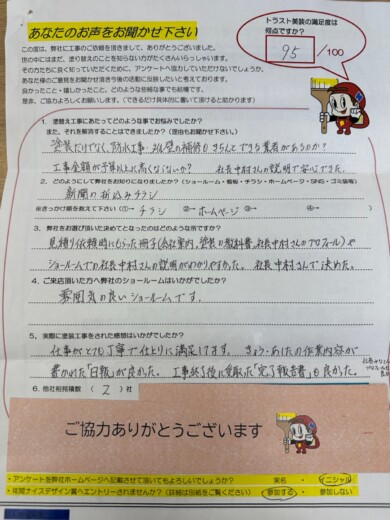 あなたのお声をお聞かせ下さい
トラスト美装の満足度は
何点ですか?
95 /100
この度は、弊社に工事のご依頼を頂きまして、ありがとうございました。
世の中にはまだ、塗り替えのことを知らない方がたくさんいらっしゃいます。
その方たちに良く知っていただくために、アンケートへ協力していただけないでしょうか。
あなた様のご意見をお聞かせ頂き今後の活動に反映したいと考えております。
良かったこと・嬉しかったこと、どのような些細な事でも結構です。
是非、ご協力よろしくお願いします。(できるだけ具体的に書いて頂けると助かります)
1. 塗替え工事にあたってどのような事でお悩みでしたか?
また、それを解消することはできましたか?(理由もお聞かせ下さい。)
塗装だけでなく、防水工事・外壁の補修のきちんとできる業者があるのか?
工事金額が予算以上に高くならないか? 社長中村さんの説明で安心できた。
2. どのようにして弊社をお知りになりましたか?(ショールーム・看板・チラシ・ホームページ・
新聞の折込みチラシ
※きっかけ順を教えて下さい(①→ チラシ ②→ ホームページ ③→ ④→ )
3. 弊社をお選び頂いた決めてとなったのはどのような所ですか?
見積り依頼時にもらった冊子(会社案内、塗装の教科書、社長中村さんのプロフィール)や
ショールームでの社長中村さんの説明がわかりやすかった。社長中村さんで決めた。
4. ご来店頂いた方へ弊社のショールームはいかがでしたか?
雰囲気の良いショールームです。
5. 実際に塗装工事をされた感想はいかがでしたか?
仕事がとても丁寧で仕上りに満足してます。きょう・あしたの作業内容が
書かれた「日報」が良かった。工事終了後に受取った「完了報告書」も良かった。
6. 他社相見積数 ( 2 ) 社
ご協力ありがとうございます
・アンケートを弊社ホームページへ記載させて頂いてもよろしいでしょうか? 実名 ・ イニシャル
・年間ナイスデザイン賞へエントリーされませんか?(詳細は別紙をご覧ください) 参加する ・ 参加しない